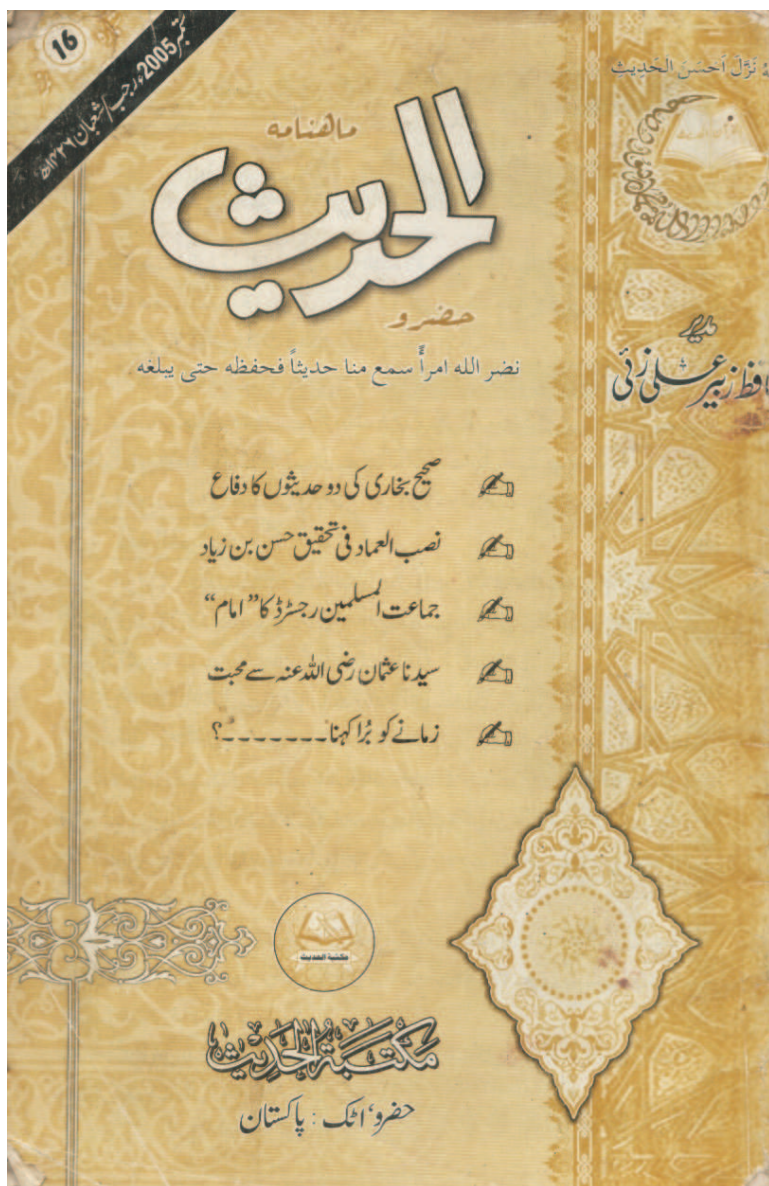 16
ستمبر 2005ء رجب/شعبان ۱۴۲۶ھ
نَزَّلَ اَحْسَنَ الْحَدِيْثِ
ماهنامه
الحديث
حضرو
نضر الله امرأً سمع منا حديثاً فحفظه حتى يبلغه
مدیر
حافظ زبیر علی زئی
صحیح بخاری کی دو حدیثوں کا دفاع
نصب العماد فی تحقیق حسن بن زیاد
جماعت المسلمین رجسٹرڈ کا "امام"
سیدنا عثمان رضی اللہ عنہ سے محبت
زمانے کو بُرا کہنا۔۔۔۔۔۔۔؟
مكتبة الحديث
مَكْتَبَةُ الْحَدِيْث
حضرو، اٹک : پاکستان